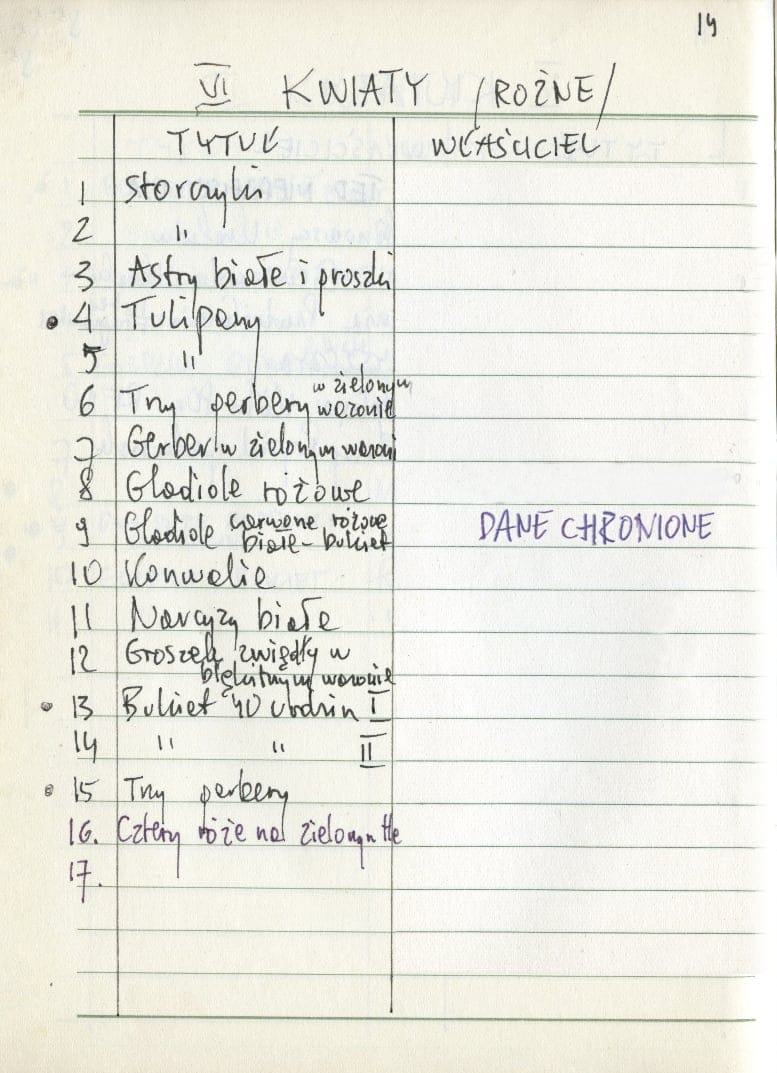 14
VI KWIATY /ROŻNE/
TYTUŁ WŁAŚCICIEL
1 Storczyki
2 "
3 Astry białe i proszki
4 Tulipany
5 "
6 Trzy gerbery w zielonym
wazonie
7 Gerbery w zielonym wazoni
8 Gladiole różowe
9 Gladiole czerwone różowe
białe - bukiet
DANE CHRONIONE
10 Konwalie
11 Narcyzy białe
12 Groszek zwiędły w
błękitnym wazonie
13 Bukiet 40 urodzin I
14 " " II
15 Trzy gerbery
16. Cztery róże na zielonym tle
17.